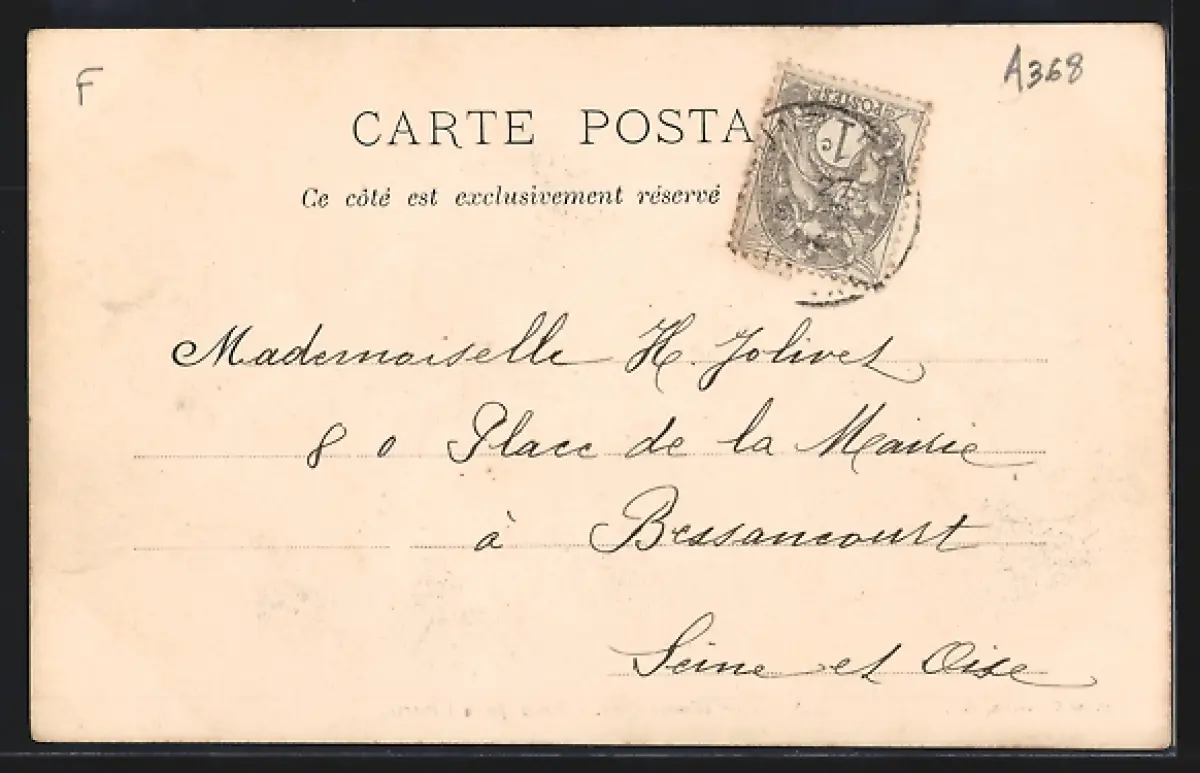 F
A368
CARTE POSTA
POSTES
1c
Ce côté est exclusivement réservé
Mademoiselle H. Jolivet
80 Place de la Mairie
à Bessancourt
Seine et Oise